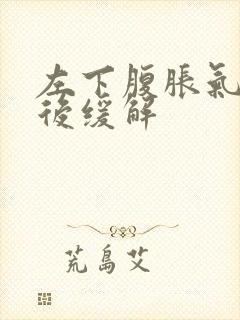 左下腹脹氣
後緩解
荒島艾